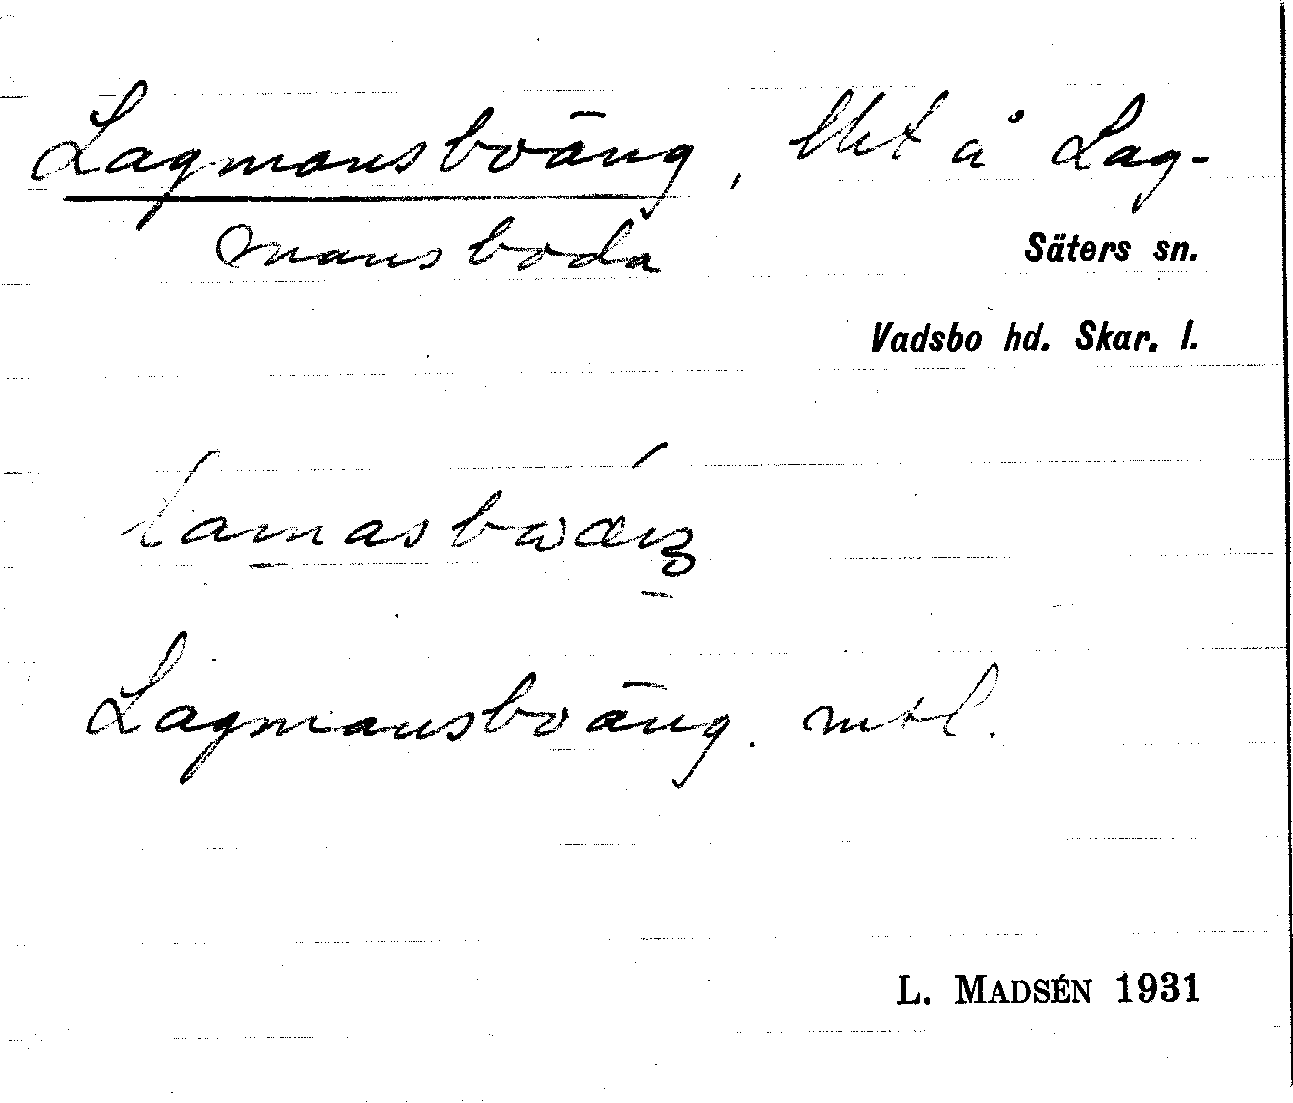 Lagmansboäng, lht å Lag-
mansboda
Säters sn.
Vadsbo hd. Skar. l.
Lagmansboäng. mtl.
L. MADSÉN 1931